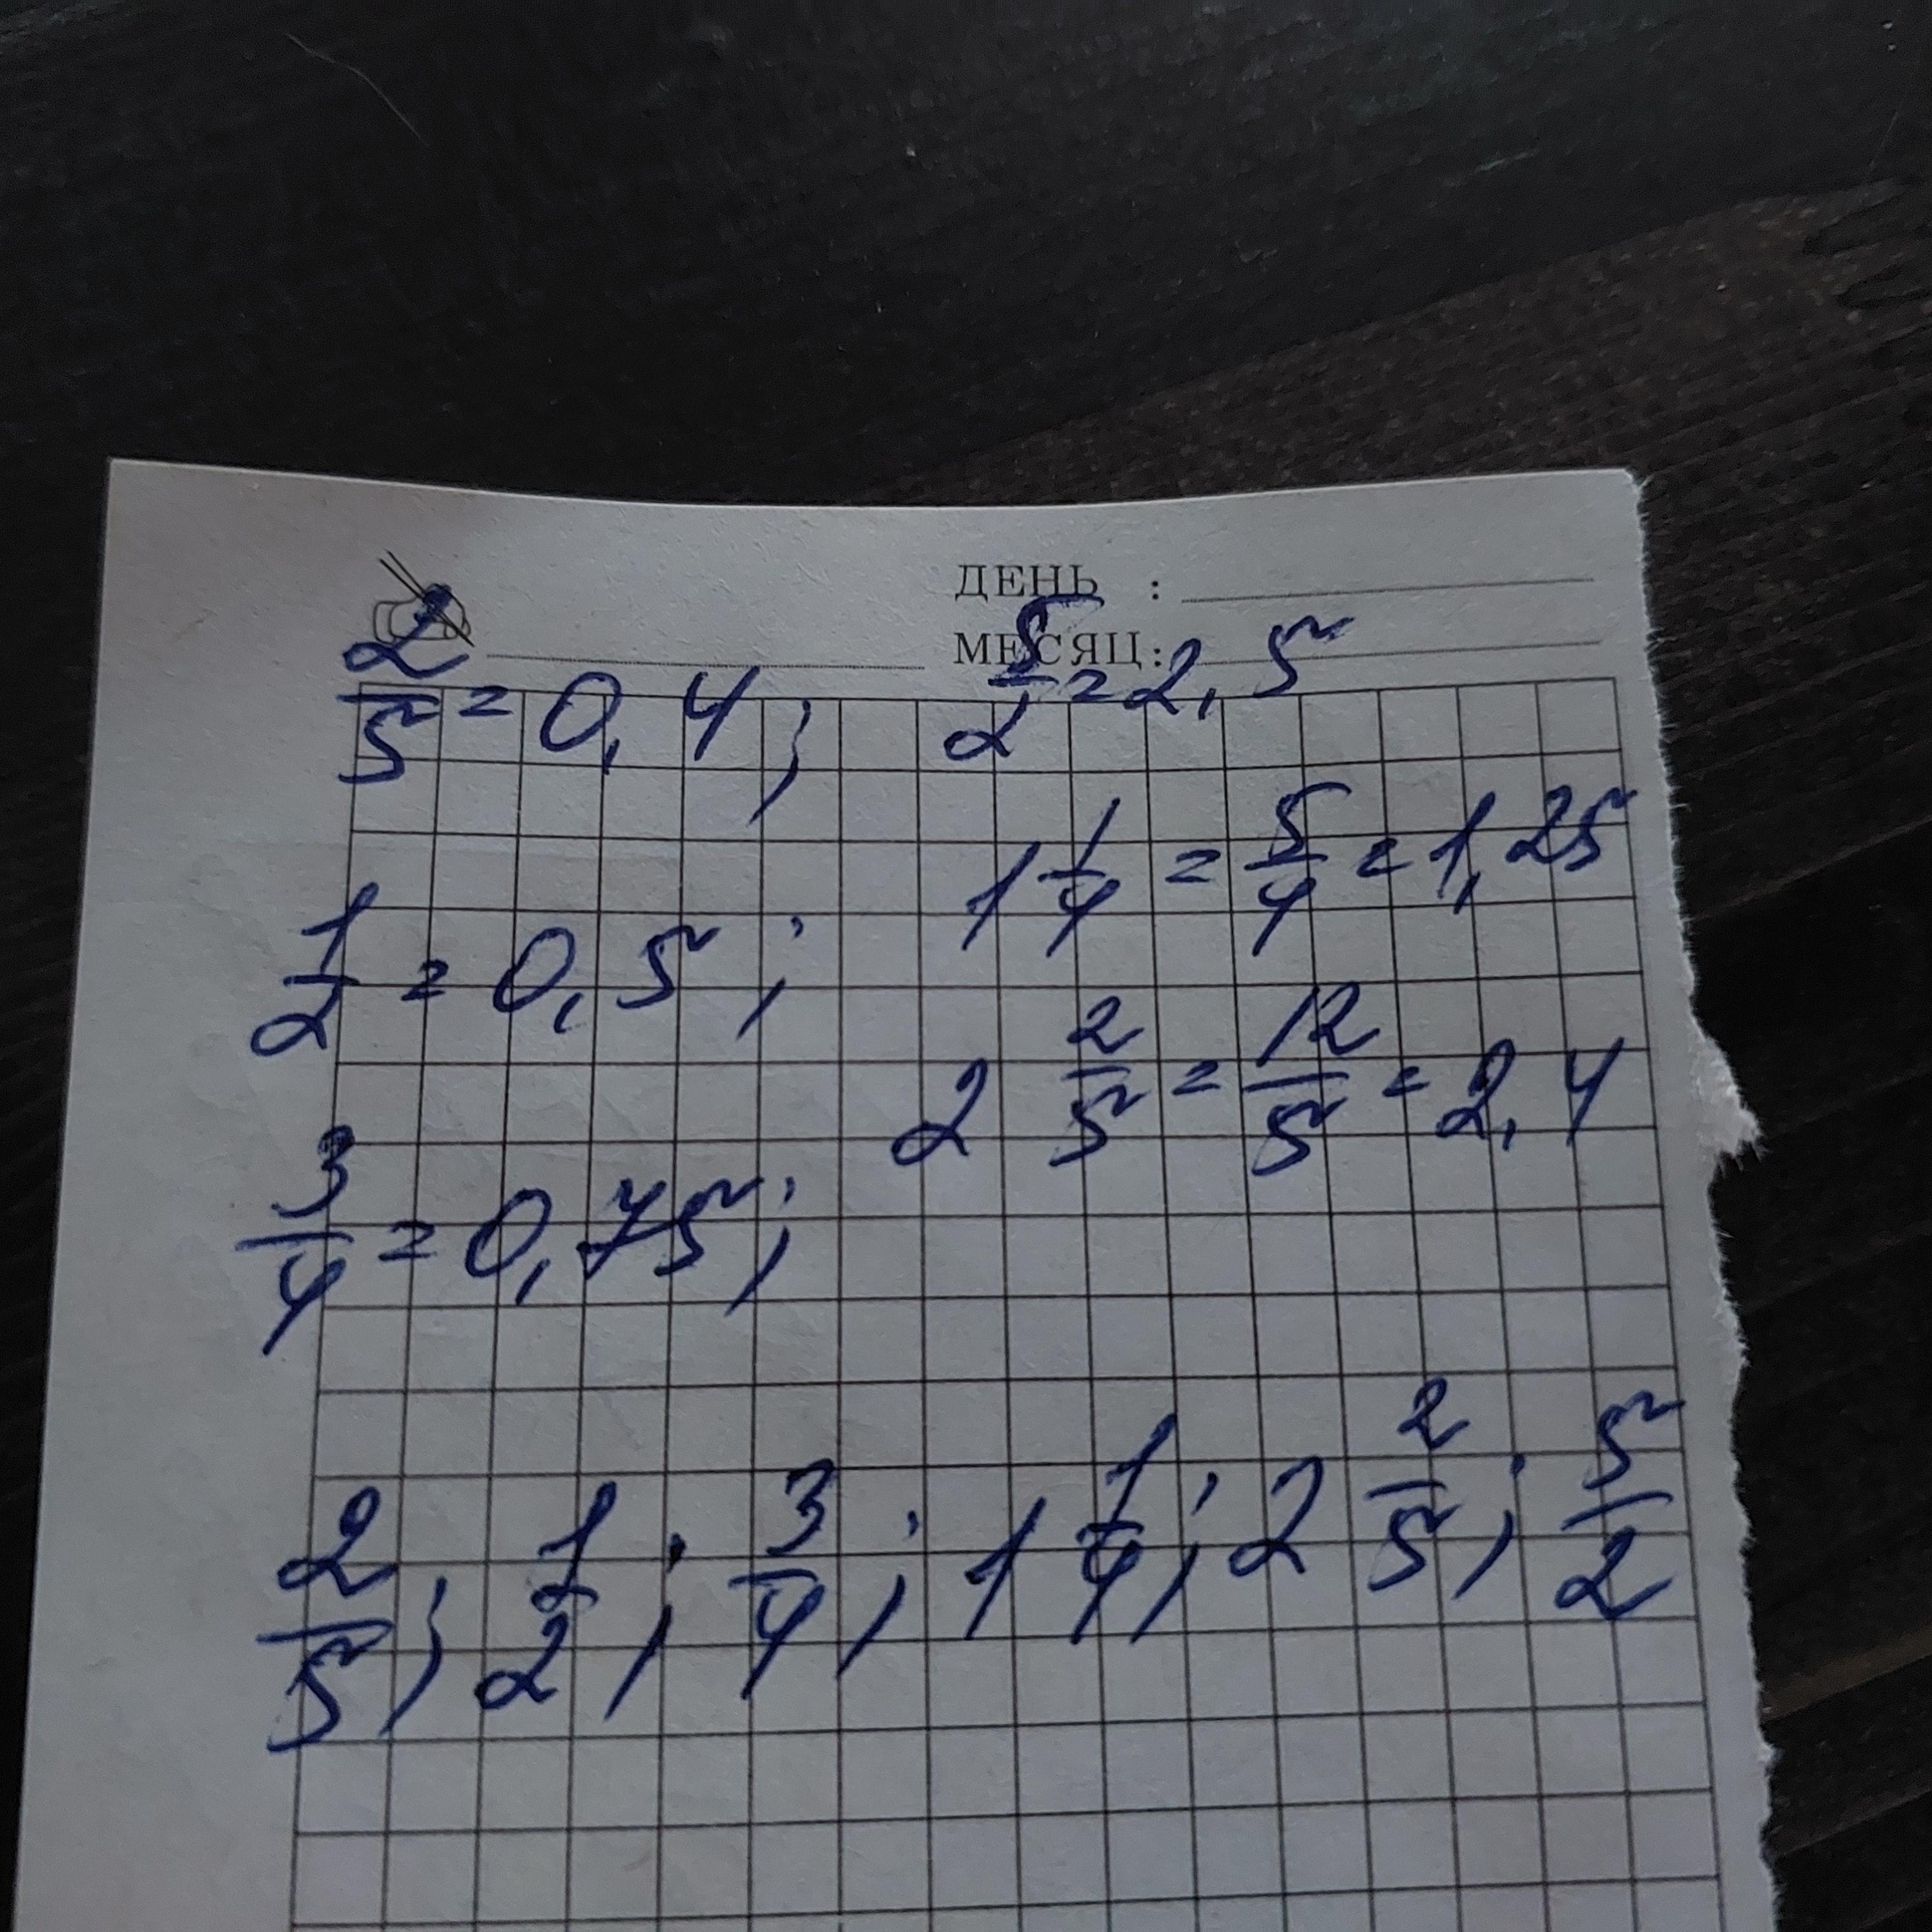 ДЕНЬ :
МЕСЯЦ:
2/5 = 0,4; 5/2 = 2,5
1 1/4 = 5/4 = 1,25
1/2 = 0,5;
2 2/5 = 12/5 = 2,4
3/4 = 0,75;
2/5; 1/2; 3/4; 1 1/4; 2 2/5; 5/2